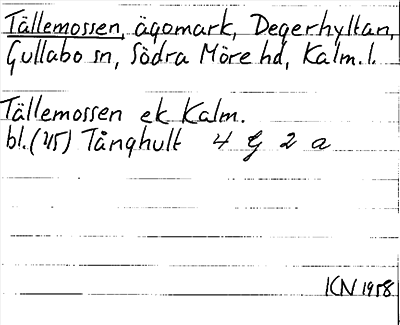 Tällemossen, ägomark, Degerhyltan,
Gullabo sn, Södra Möre hd, Kalm. l.
Tällemossen ek Kalm.
bl. ('45) Tånghult 4 G 2 a
KN 1958